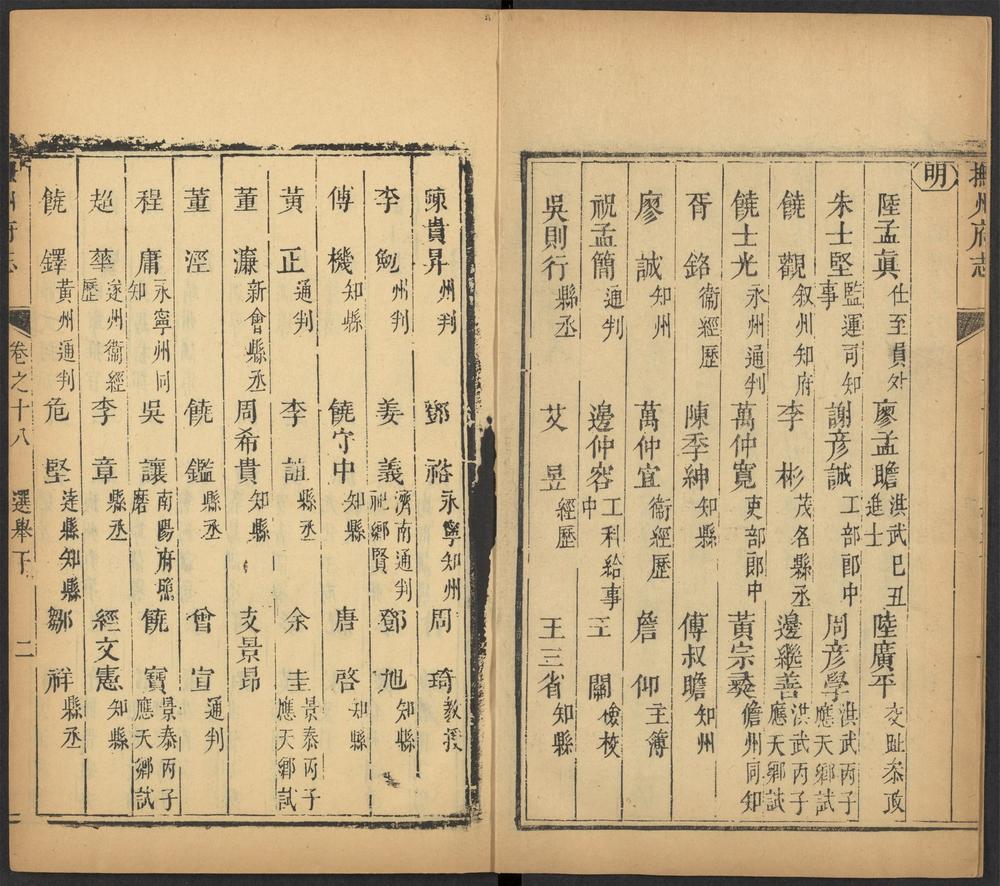 撫州府志
明
陸孟真 仕至員外 廖孟瞻 洪武己丑進士 陸廣平 交趾叅政
朱士堅 監運司知事 謝彦誠 工部郎中 周彦學 洪武丙子應天鄉試
饒觀 叙州知府 李彬 茂名縣丞 邊繼善 洪武丙子應天鄉試
饒士光 永州通判 萬仲寬 吏部郎中 黄宗 儋州同知
胥銘 衞經歷 陳季紳 知縣 傅叔瞻 知州
廖誠 知州 萬仲宜 衞經歷 詹仰 主簿
祝孟簡 通判 邊仲容 工科給事中 王關 檢校
吳則行 縣丞 艾昱 經歷 王三省 知縣
陳貴昇 州判 鄧裕 永寧知州 周琦 教授
李勉 州判 姜義 濟南通判祀鄉賢 鄧旭 知縣
傅機 知縣 饒守中 知縣 唐啓 知縣
黄正 通判 李誼 縣丞 余圭 景泰丙子應天鄉試
董濂 新會縣丞 周希貴 知縣 支景昂
董涇 饒鑑 縣丞 曾宣 通判
程庸 永寧州同知 吳讓 南陽府照磨 饒寶 景泰丙子應天鄉試
趙華 遂州衞經歷 李章 縣丞 經文憲 知縣
饒鐸 黄州通判 危堅 達縣知縣 鄒祥 縣丞
州府志 卷之十八 選舉下 二